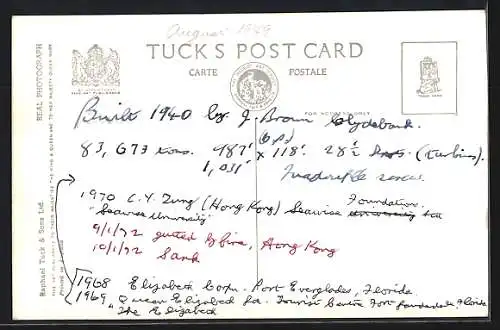 August 1949
TUCK'S POST CARD
CARTE POSTALE
REAL PHOTOGRAPH
Raphael Tuck & Sons Ltd.
Built 1940 by J. Brown Clydebank.
83,673 tons. 987' x 118'. 28½ (turbins)
1,031'
Quadruple screw
1970 C.Y. Tung (Hong Kong) Seawise University
Foundation.
"Seawise University"
9/1/72 gutted by fire, Hong Kong
10/1/72 Sank
1968 Elizabeth Corpn. Port Everglades, Florida
1969 "Queen Elizabeth Ld. Tourist Centre Fort Lauderdale, Florida
"The Elizabeth